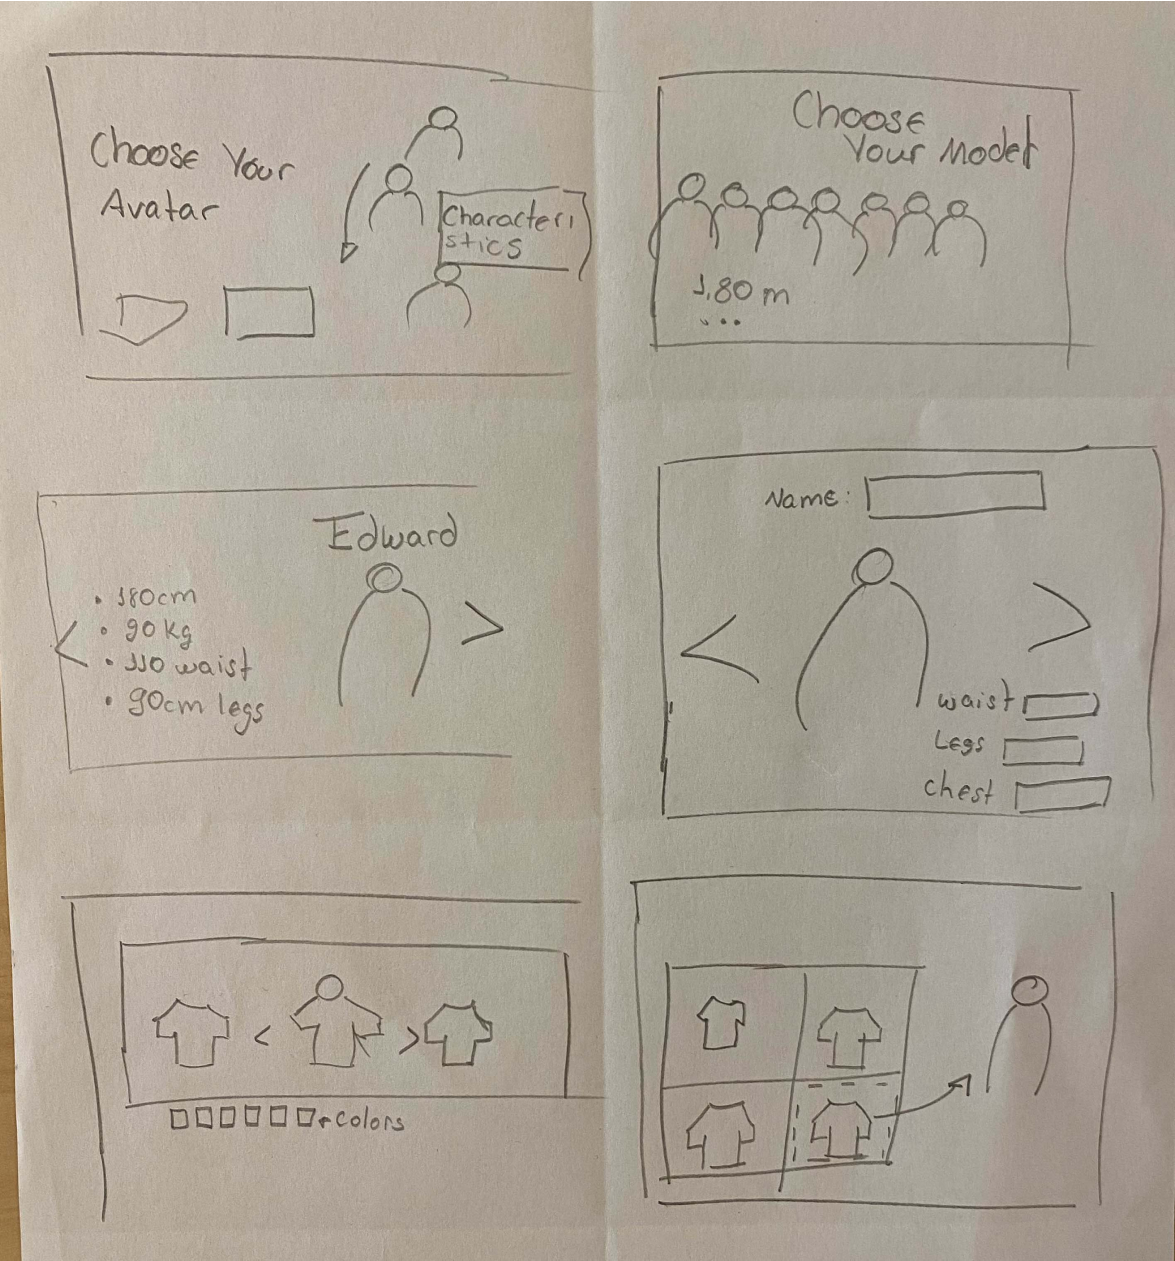 Choose Your
Avatar
Characteri
stics
Choose
Your Model
1,80 m
...
Edward
• 180cm
• 90 kg
• 110 waist
• 90cm legs
<
>
Name:
<
>
waist
Legs
chest
<
>
colors